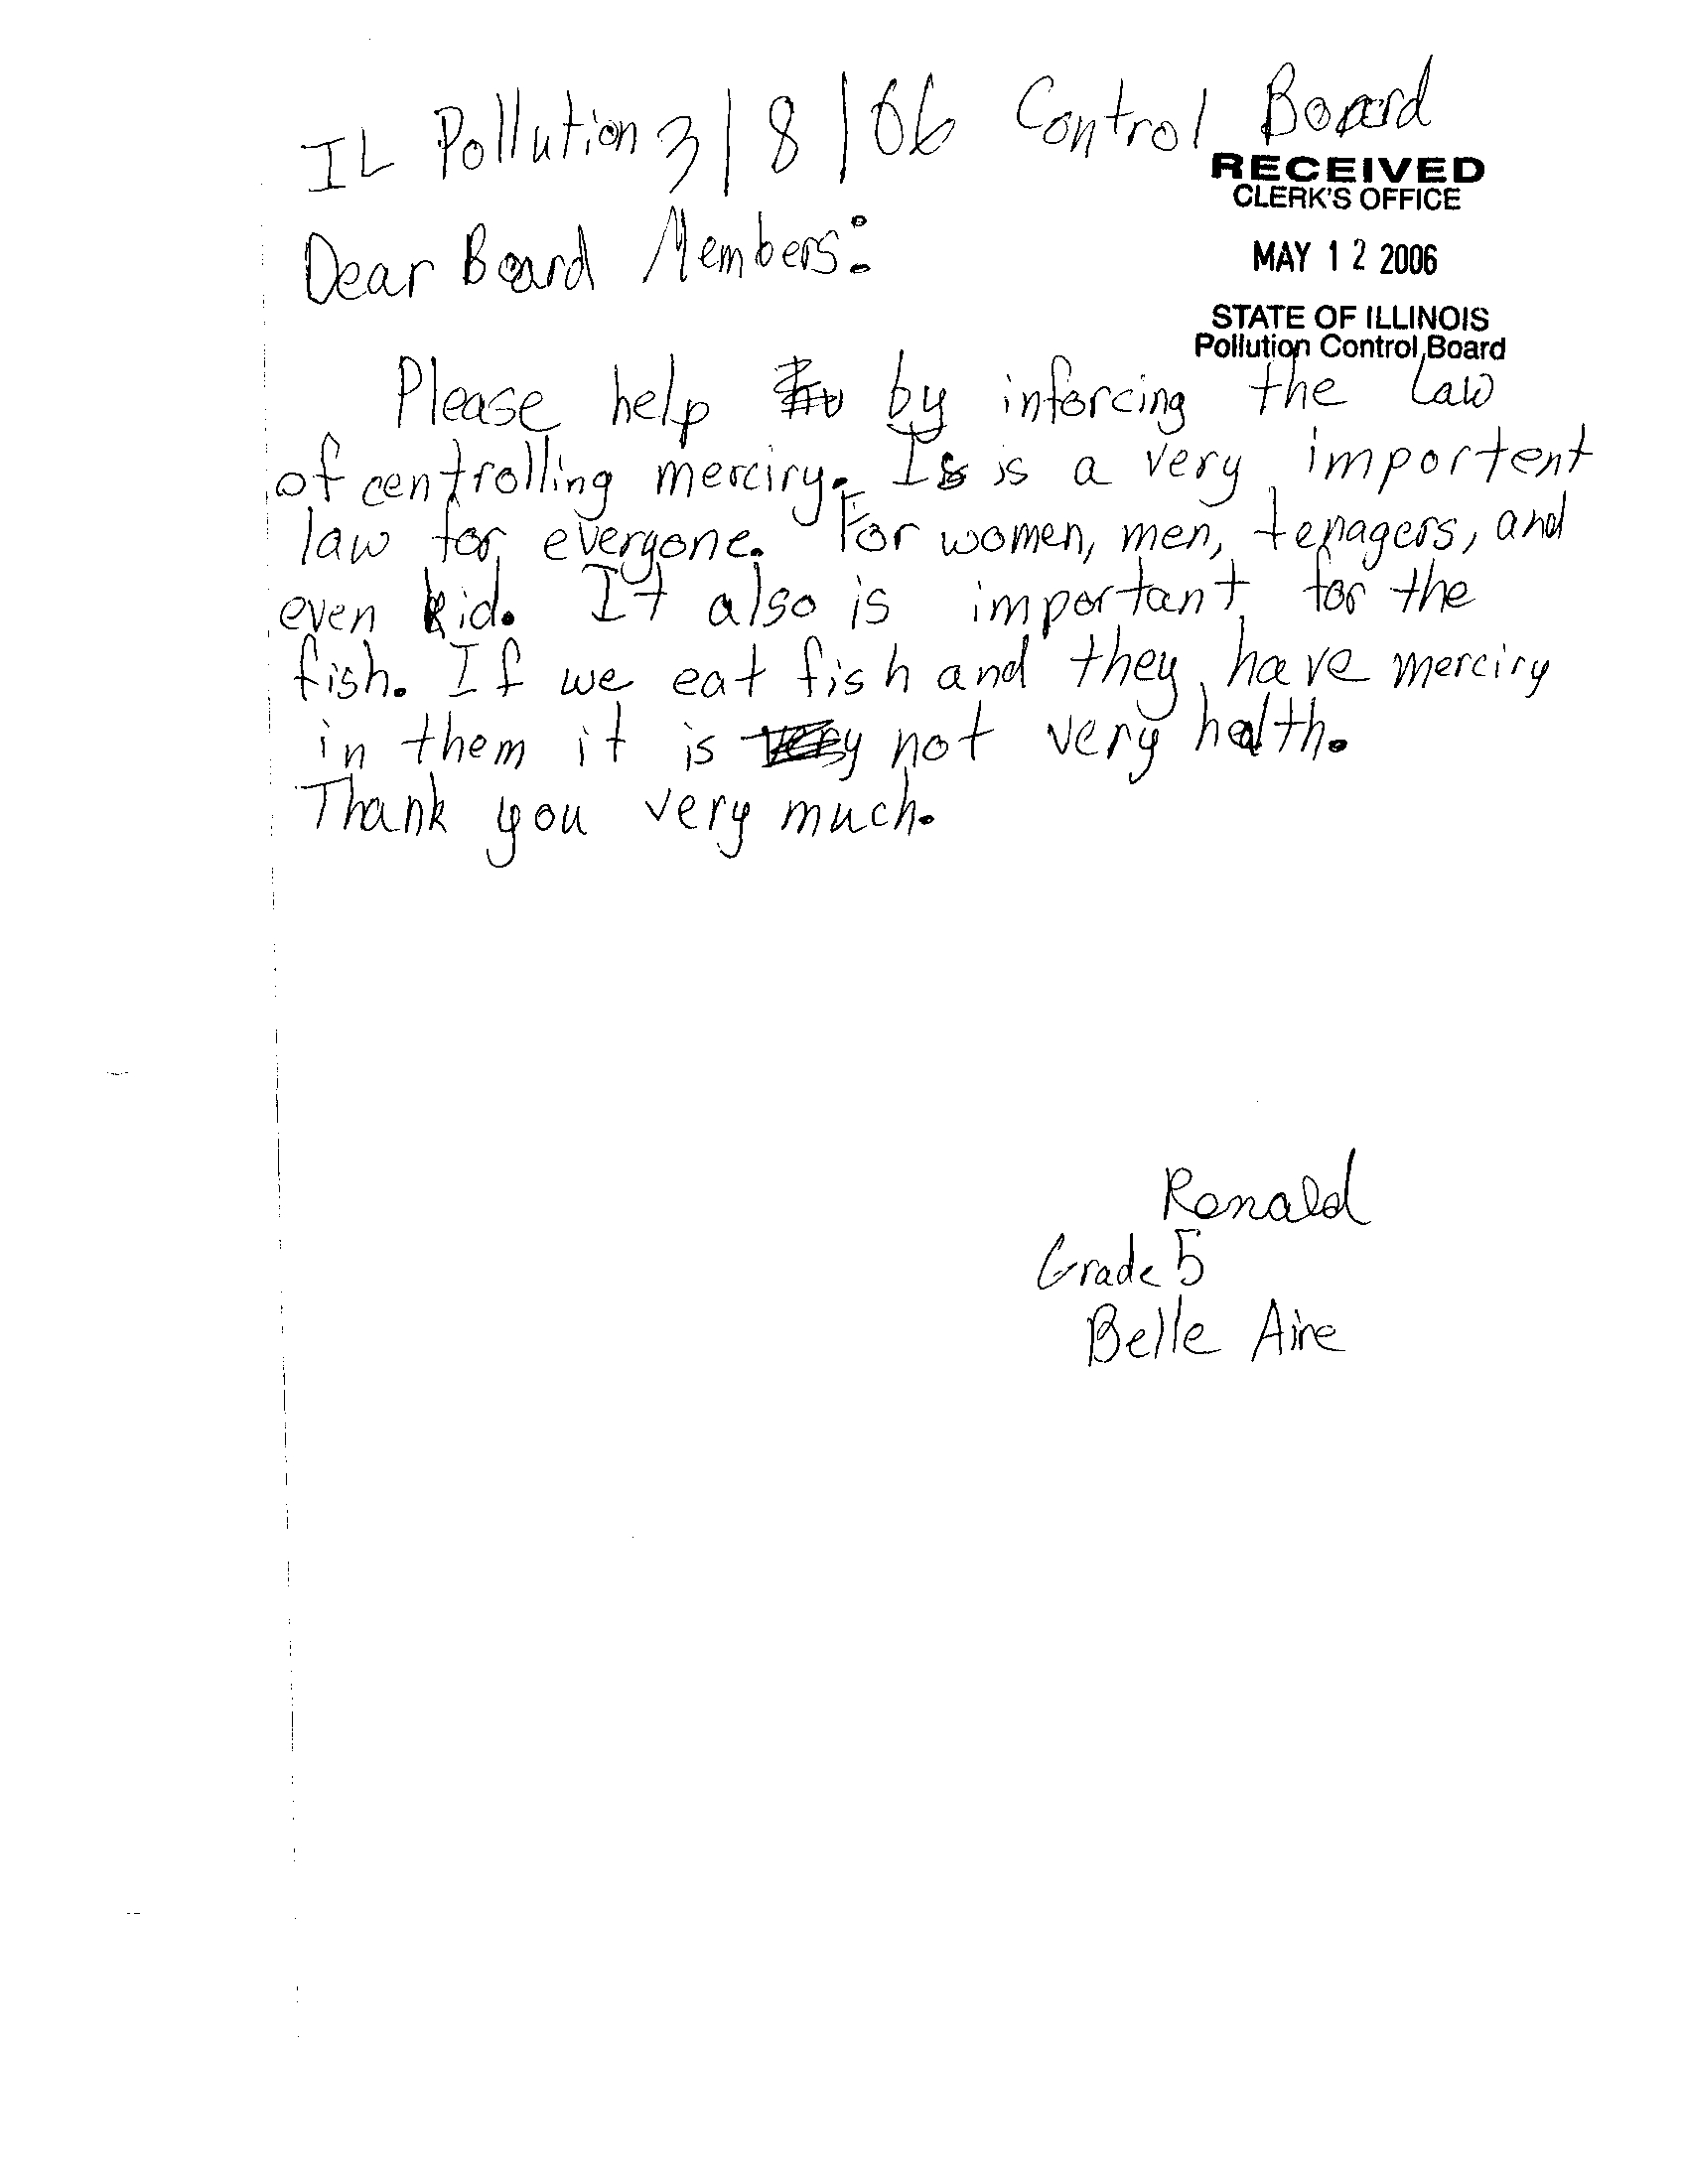 IL Pollution 3/8/06 Control Board
RECEIVED
CLERK'S OFFICE
MAY 12 2006
STATE OF ILLINOIS
Pollution Control Board
Dear Board Members:
Please help by inforcing the law
of controlling merciry. Is is a very importent
law for everyone. For women, men, tenagers, and
even kid. It also is important for the
fish. If we eat fish and they have merciry
in them it is very not very halth.
Thank you very much.
Ronald
Grade 5
Belle Aire